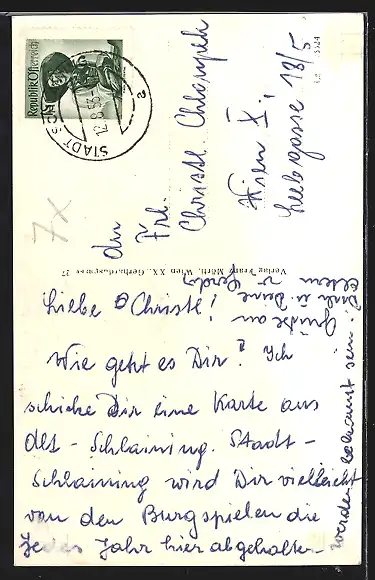 Republik Österreich
STADT SCH
12.8.56
a
An
Frl.
Christl Chlompek
Wien X.,
Leebgasse 18/5
7x
Verlag Franz Mörth, Wien XX., Gerhardusgasse 27
Liebe Christl!
Wie geht es Dir? Ich
schicke Dir eine Karte aus
Alt-Schlaining. Stadt-
Schlaining wird Dir vielleicht
von den Burgspielen die
jedes Jahr hier abgehalten
werden bekannt sein.
Grüße an
Dich u. Deine
Eltern v. Gerda